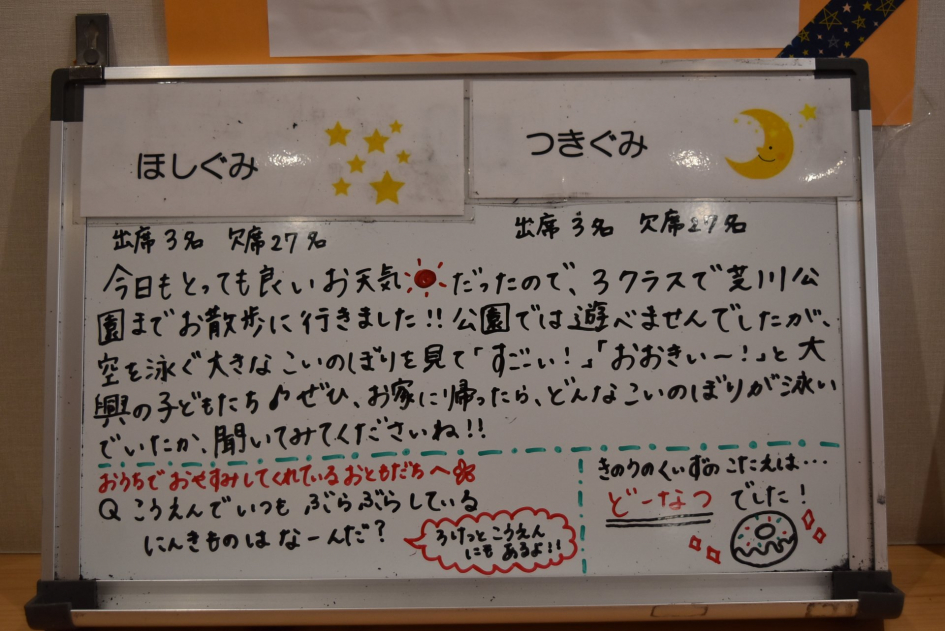 ほしぐみ
つきぐみ
出席3名 欠席27名
出席3名 欠席27名
今日もとっても良いお天気だったので、3クラスで芝川公
園までお散歩に行きました!!公園では遊べませんでしたが、
空を泳ぐ大きなこいのぼりを見て「すごーい!」「おおきい〜!」と大
興の子どもたち♪ぜひ、お家に帰ったら、どんなこいのぼりが泳い
でいたか、聞いてみてくださいね!!
おうちでおやすみしてくれているおともだちへ
Q こうえんでいつも ぶらぶらしている
にんきものは なーんだ?
ろけっとこうえん
にも あるよ!!
きのうのくいずのこたえは…
どーなつ でした!